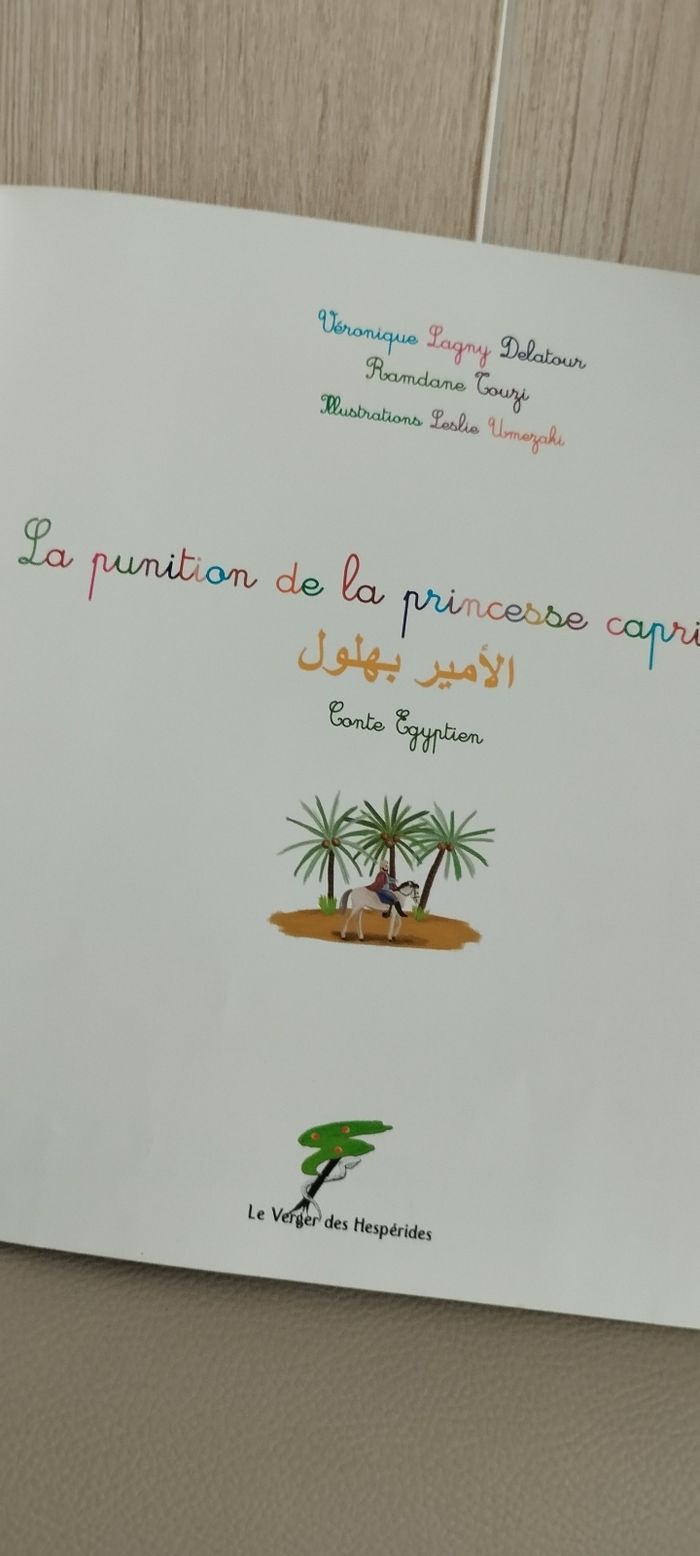 Véronique Lagny Delatour
Ramdane Touzi
Illustrations Leslie Umezaki
La punition de la princesse capri
الأمير بهلول
Conte Egyptien
Le Verger des Hespérides